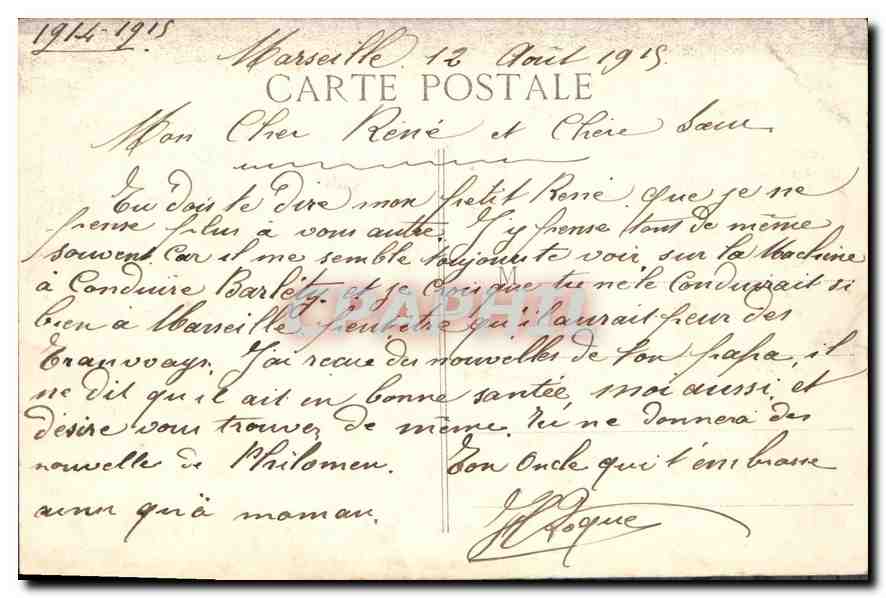 1914-1915
Marseille. 12 Août 1915.
CARTE POSTALE
Mon Cher Réné et Chère Sœur
Tu dois te dire mon petit René que je ne
pense plus a vous autre. J'y pense tout de même
souvent car il me semble toujours te voir sur la Machine
à Conduire Barlëty et je crois que tu ne le Conduirait si
bien à Marseille peut être qu'il aurait peur des
Tranvvays. J'ai reçue des nouvelles de ton papa, il
ne dit qu'il ait en bonne santée, moi aussi et
désire vous trouver de même. Tu ne donnera des
nouvelle de Philomen. Ton Oncle qui t'embrasse
ainsi qu'à maman.
Roque
M
CPAPHIL